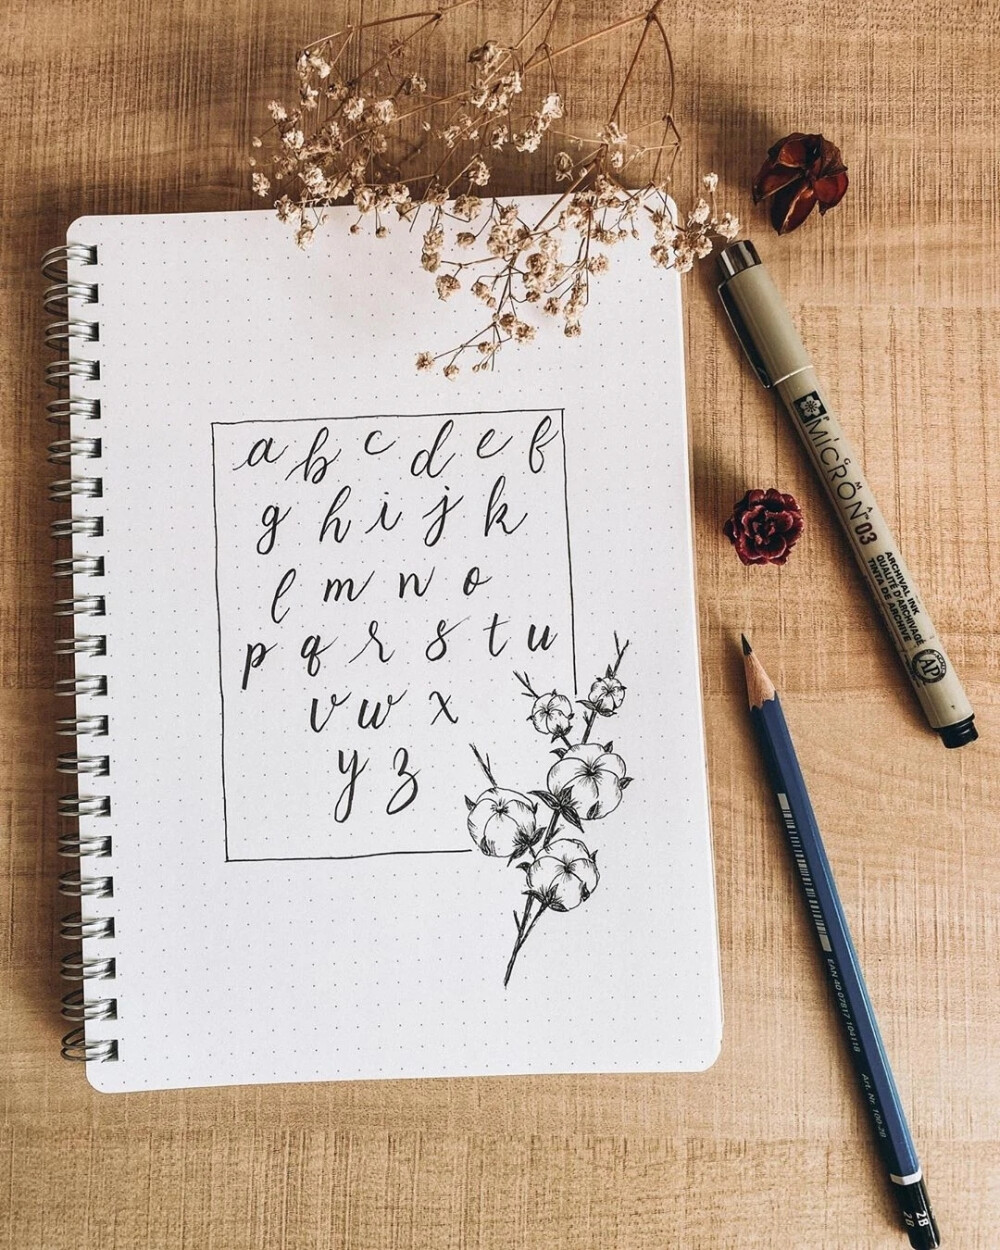 a b c d e f
g h i j k
l m n o
p q r s t u
v w x
y z
PIGMA
MICRON 03
ARCHIVAL INK
QUALITÉ D'ARCHIVAGE
TINTA DE ARCHIVE
AP
EAN 40 07817 104118
Art. Nr. 100-2B
2B
2B